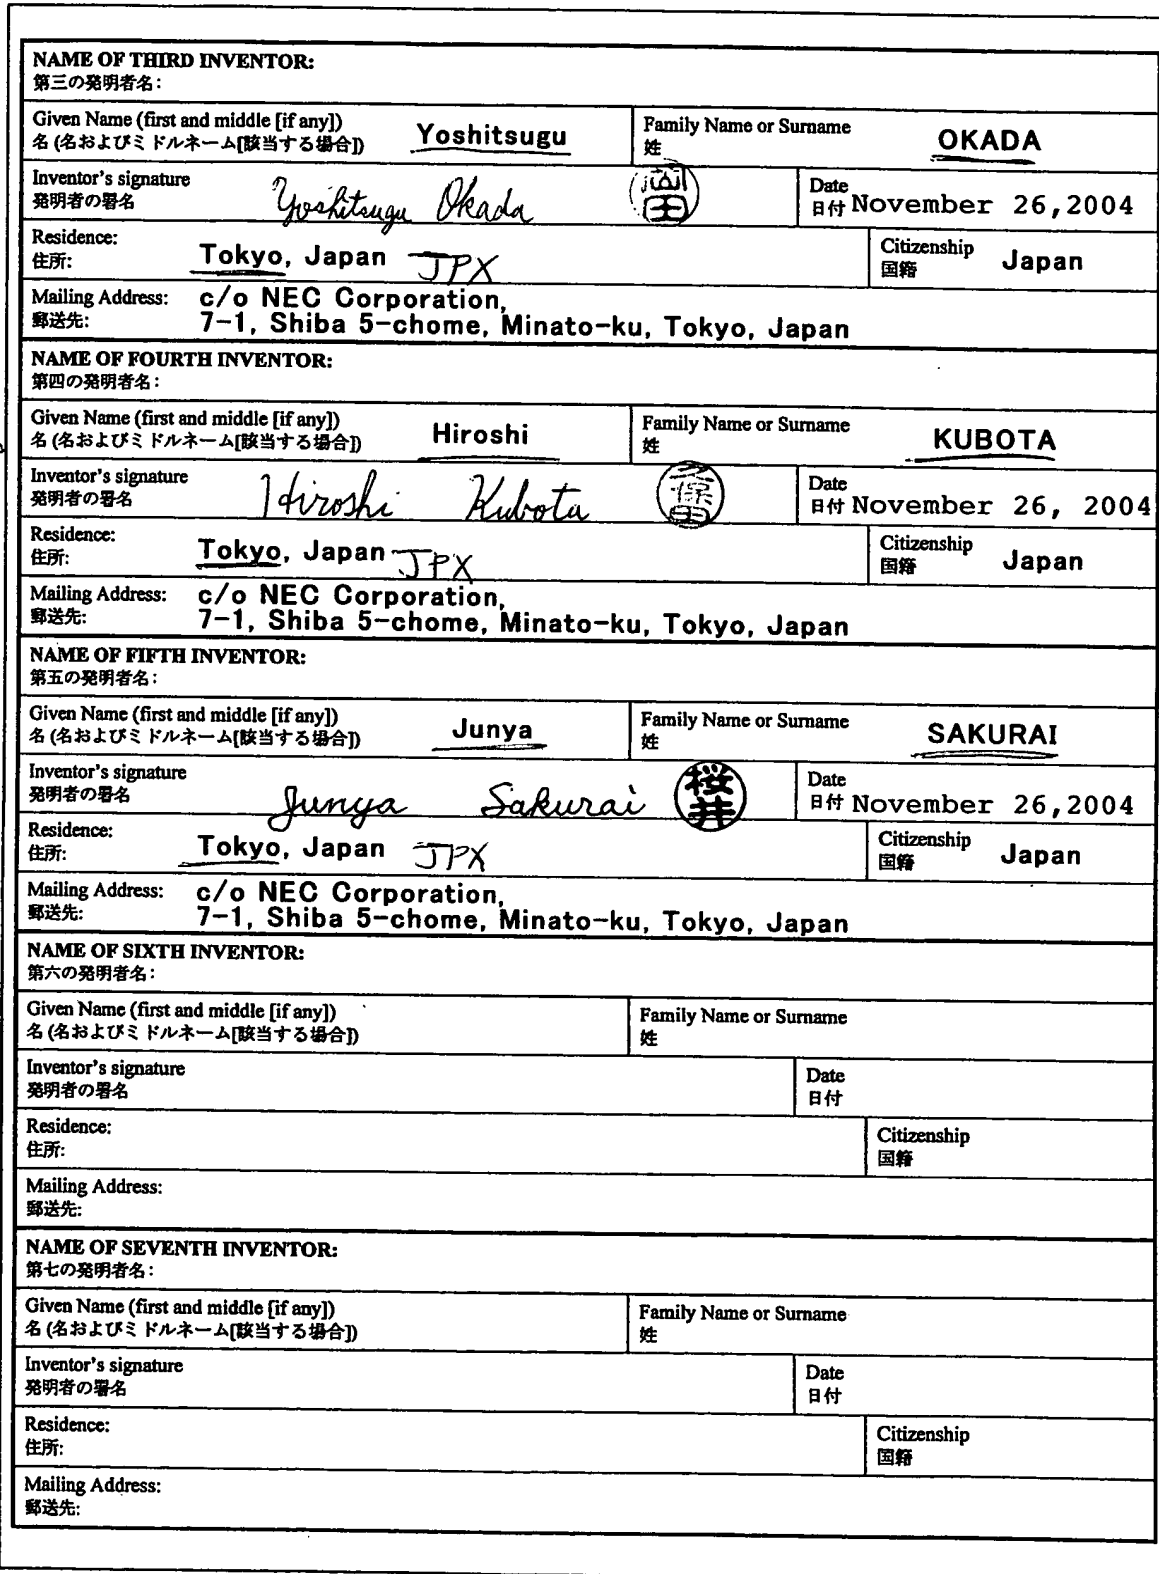 NAME OF THIRD INVENTOR:
第三の発明者名:
Given Name (first and middle [if any])
名 (名およびミドルネーム[該当する場合])
Yoshitsugu
Family Name or Surname
姓
OKADA
Inventor's signature
発明者の署名
Yoshitsugu Okada
岡田
Date
日付 November 26,2004
Residence:
住所:
Tokyo, Japan JPX
Citizenship
国籍
Japan
Mailing Address:
郵送先:
c/o NEC Corporation,
7-1, Shiba 5-chome, Minato-ku, Tokyo, Japan
NAME OF FOURTH INVENTOR:
第四の発明者名:
Given Name (first and middle [if any])
名 (名およびミドルネーム[該当する場合])
Hiroshi
Family Name or Surname
姓
KUBOTA
Inventor's signature
発明者の署名
Hiroshi Kubota
久保田
Date
日付 November 26, 2004
Residence:
住所:
Tokyo, Japan JPX
Citizenship
国籍
Japan
Mailing Address:
郵送先:
c/o NEC Corporation,
7-1, Shiba 5-chome, Minato-ku, Tokyo, Japan
NAME OF FIFTH INVENTOR:
第五の発明者名:
Given Name (first and middle [if any])
名 (名およびミドルネーム[該当する場合])
Junya
Family Name or Surname
姓
SAKURAI
Inventor's signature
発明者の署名
Junya Sakurai
桜井
Date
日付 November 26,2004
Residence:
住所:
Tokyo, Japan JPX
Citizenship
国籍
Japan
Mailing Address:
郵送先:
c/o NEC Corporation,
7-1, Shiba 5-chome, Minato-ku, Tokyo, Japan
NAME OF SIXTH INVENTOR:
第六の発明者名:
Given Name (first and middle [if any])
名 (名およびミドルネーム[該当する場合])
Family Name or Surname
姓
Inventor's signature
発明者の署名
Date
日付
Residence:
住所:
Citizenship
国籍
Mailing Address:
郵送先:
NAME OF SEVENTH INVENTOR:
第七の発明者名:
Given Name (first and middle [if any])
名 (名およびミドルネーム[該当する場合])
Family Name or Surname
姓
Inventor's signature
発明者の署名
Date
日付
Residence:
住所:
Citizenship
国籍
Mailing Address:
郵送先: